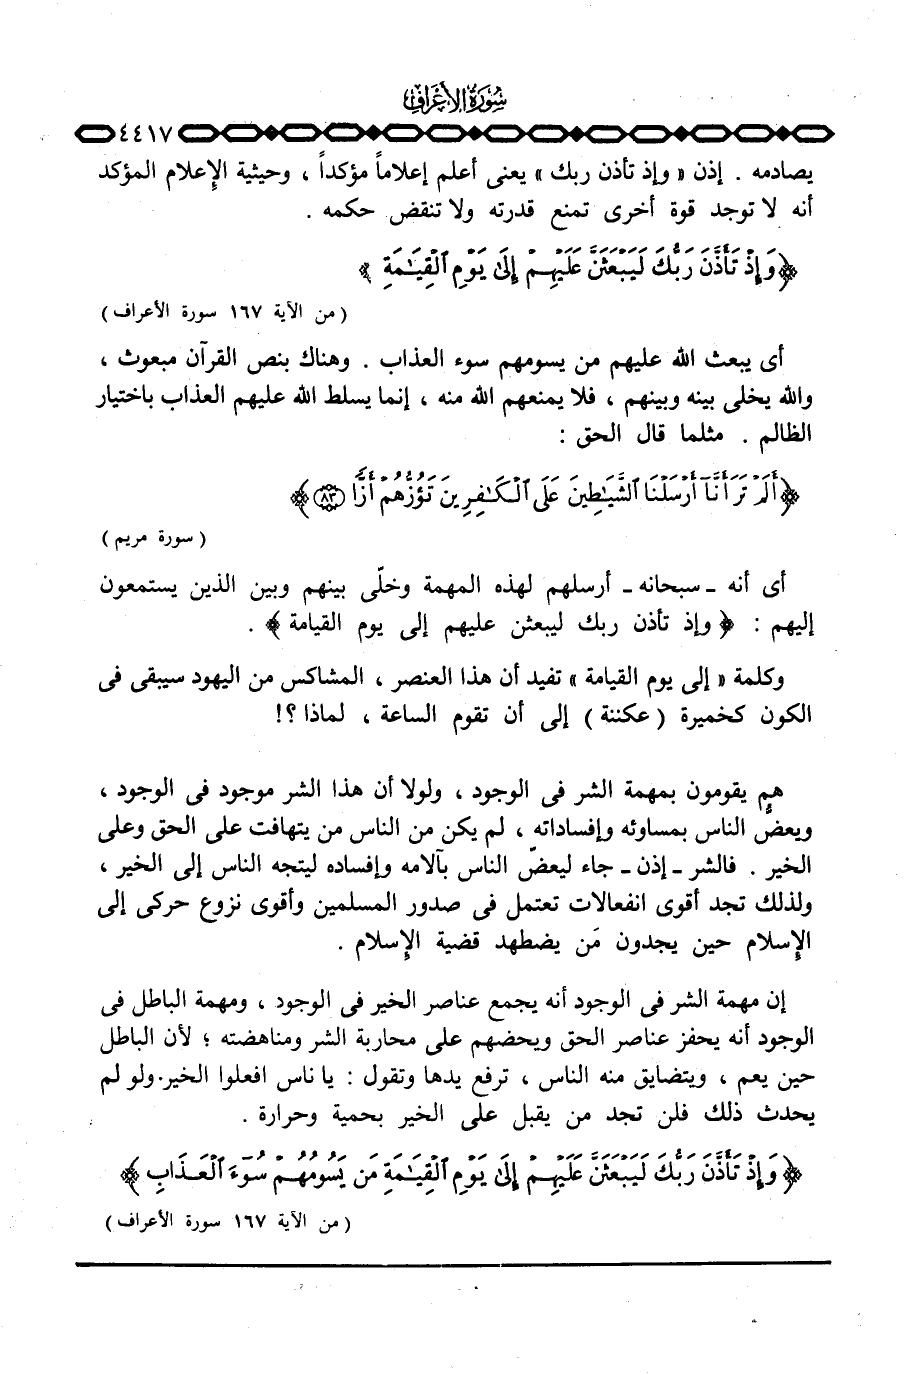 سورة الأعراف
٤٤١٧
يصادمه . إذن « وإذ تأذن ربك » يعنى أعلم إعلاماً مؤكداً ، وحيثية الإعلام المؤكد
أنه لا توجد قوة أخرى تمنع قدرته ولا تنقض حكمه .
﴿ وَإِذْ تَأَذَّنَ رَبُّكَ لَيَبْعَثَنَّ عَلَيْهِمْ إِلَىٰ يَوْمِ ٱلْقِيَـٰمَةِ ﴾
( من الآية ١٦٧ سورة الأعراف )
أى يبعث الله عليهم من يسومهم سوء العذاب . وهناك بنص القرآن مبعوث ،
والله يخلى بينه وبينهم ، فلا يمنعهم الله منه ، إنما يسلط الله عليهم العذاب باختيار
الظالم . مثلما قال الحق :
﴿ أَلَمْ تَرَ أَنَّآ أَرْسَلْنَا ٱلشَّيَـٰطِينَ عَلَى ٱلْكَـٰفِرِينَ تَؤُزُّهُمْ أَزًّا ۝٨٣ ﴾
( سورة مريم )
أى أنه ـ سبحانه ـ أرسلهم لهذه المهمة وخلّى بينهم وبين الذين يستمعون
إليهم : ﴿ وإذ تأذن ربك ليبعثن عليهم إلى يوم القيامة ﴾ .
وكلمة « إلى يوم القيامة » تفيد أن هذا العنصر ، المشاكس من اليهود سيبقى فى
الكون كخميرة ( عكننة ) إلى أن تقوم الساعة ، لماذا ؟!
هم يقومون بمهمة الشر فى الوجود ، ولولا أن هذا الشر موجود فى الوجود ،
ويعضُّ الناس بمساوئه وإفساداته ، لم يكن من الناس من يتهافت على الحق وعلى
الخير . فالشر ـ إذن ـ جاء ليعضّ الناس بآلامه وإفساده ليتجه الناس إلى الخير ،
ولذلك تجد أقوى انفعالات تعتمل فى صدور المسلمين وأقوى نزوع حركى إلى
الإسلام حين يجدون مَن يضطهد قضية الإسلام .
إن مهمة الشر فى الوجود أنه يجمع عناصر الخير فى الوجود ، ومهمة الباطل فى
الوجود أنه يحفز عناصر الحق ويحضهم على محاربة الشر ومناهضته ؛ لأن الباطل
حين يعم ، ويتضايق منه الناس ، ترفع يدها وتقول : يا ناس افعلوا الخير. ولو لم
يحدث ذلك فلن تجد من يقبل على الخير بحمية وحرارة .
﴿ وَإِذْ تَأَذَّنَ رَبُّكَ لَيَبْعَثَنَّ عَلَيْهِمْ إِلَىٰ يَوْمِ ٱلْقِيَـٰمَةِ مَن يَسُومُهُمْ سُوٓءَ ٱلْعَذَابِ ﴾
( من الآية ١٦٧ سورة الأعراف )